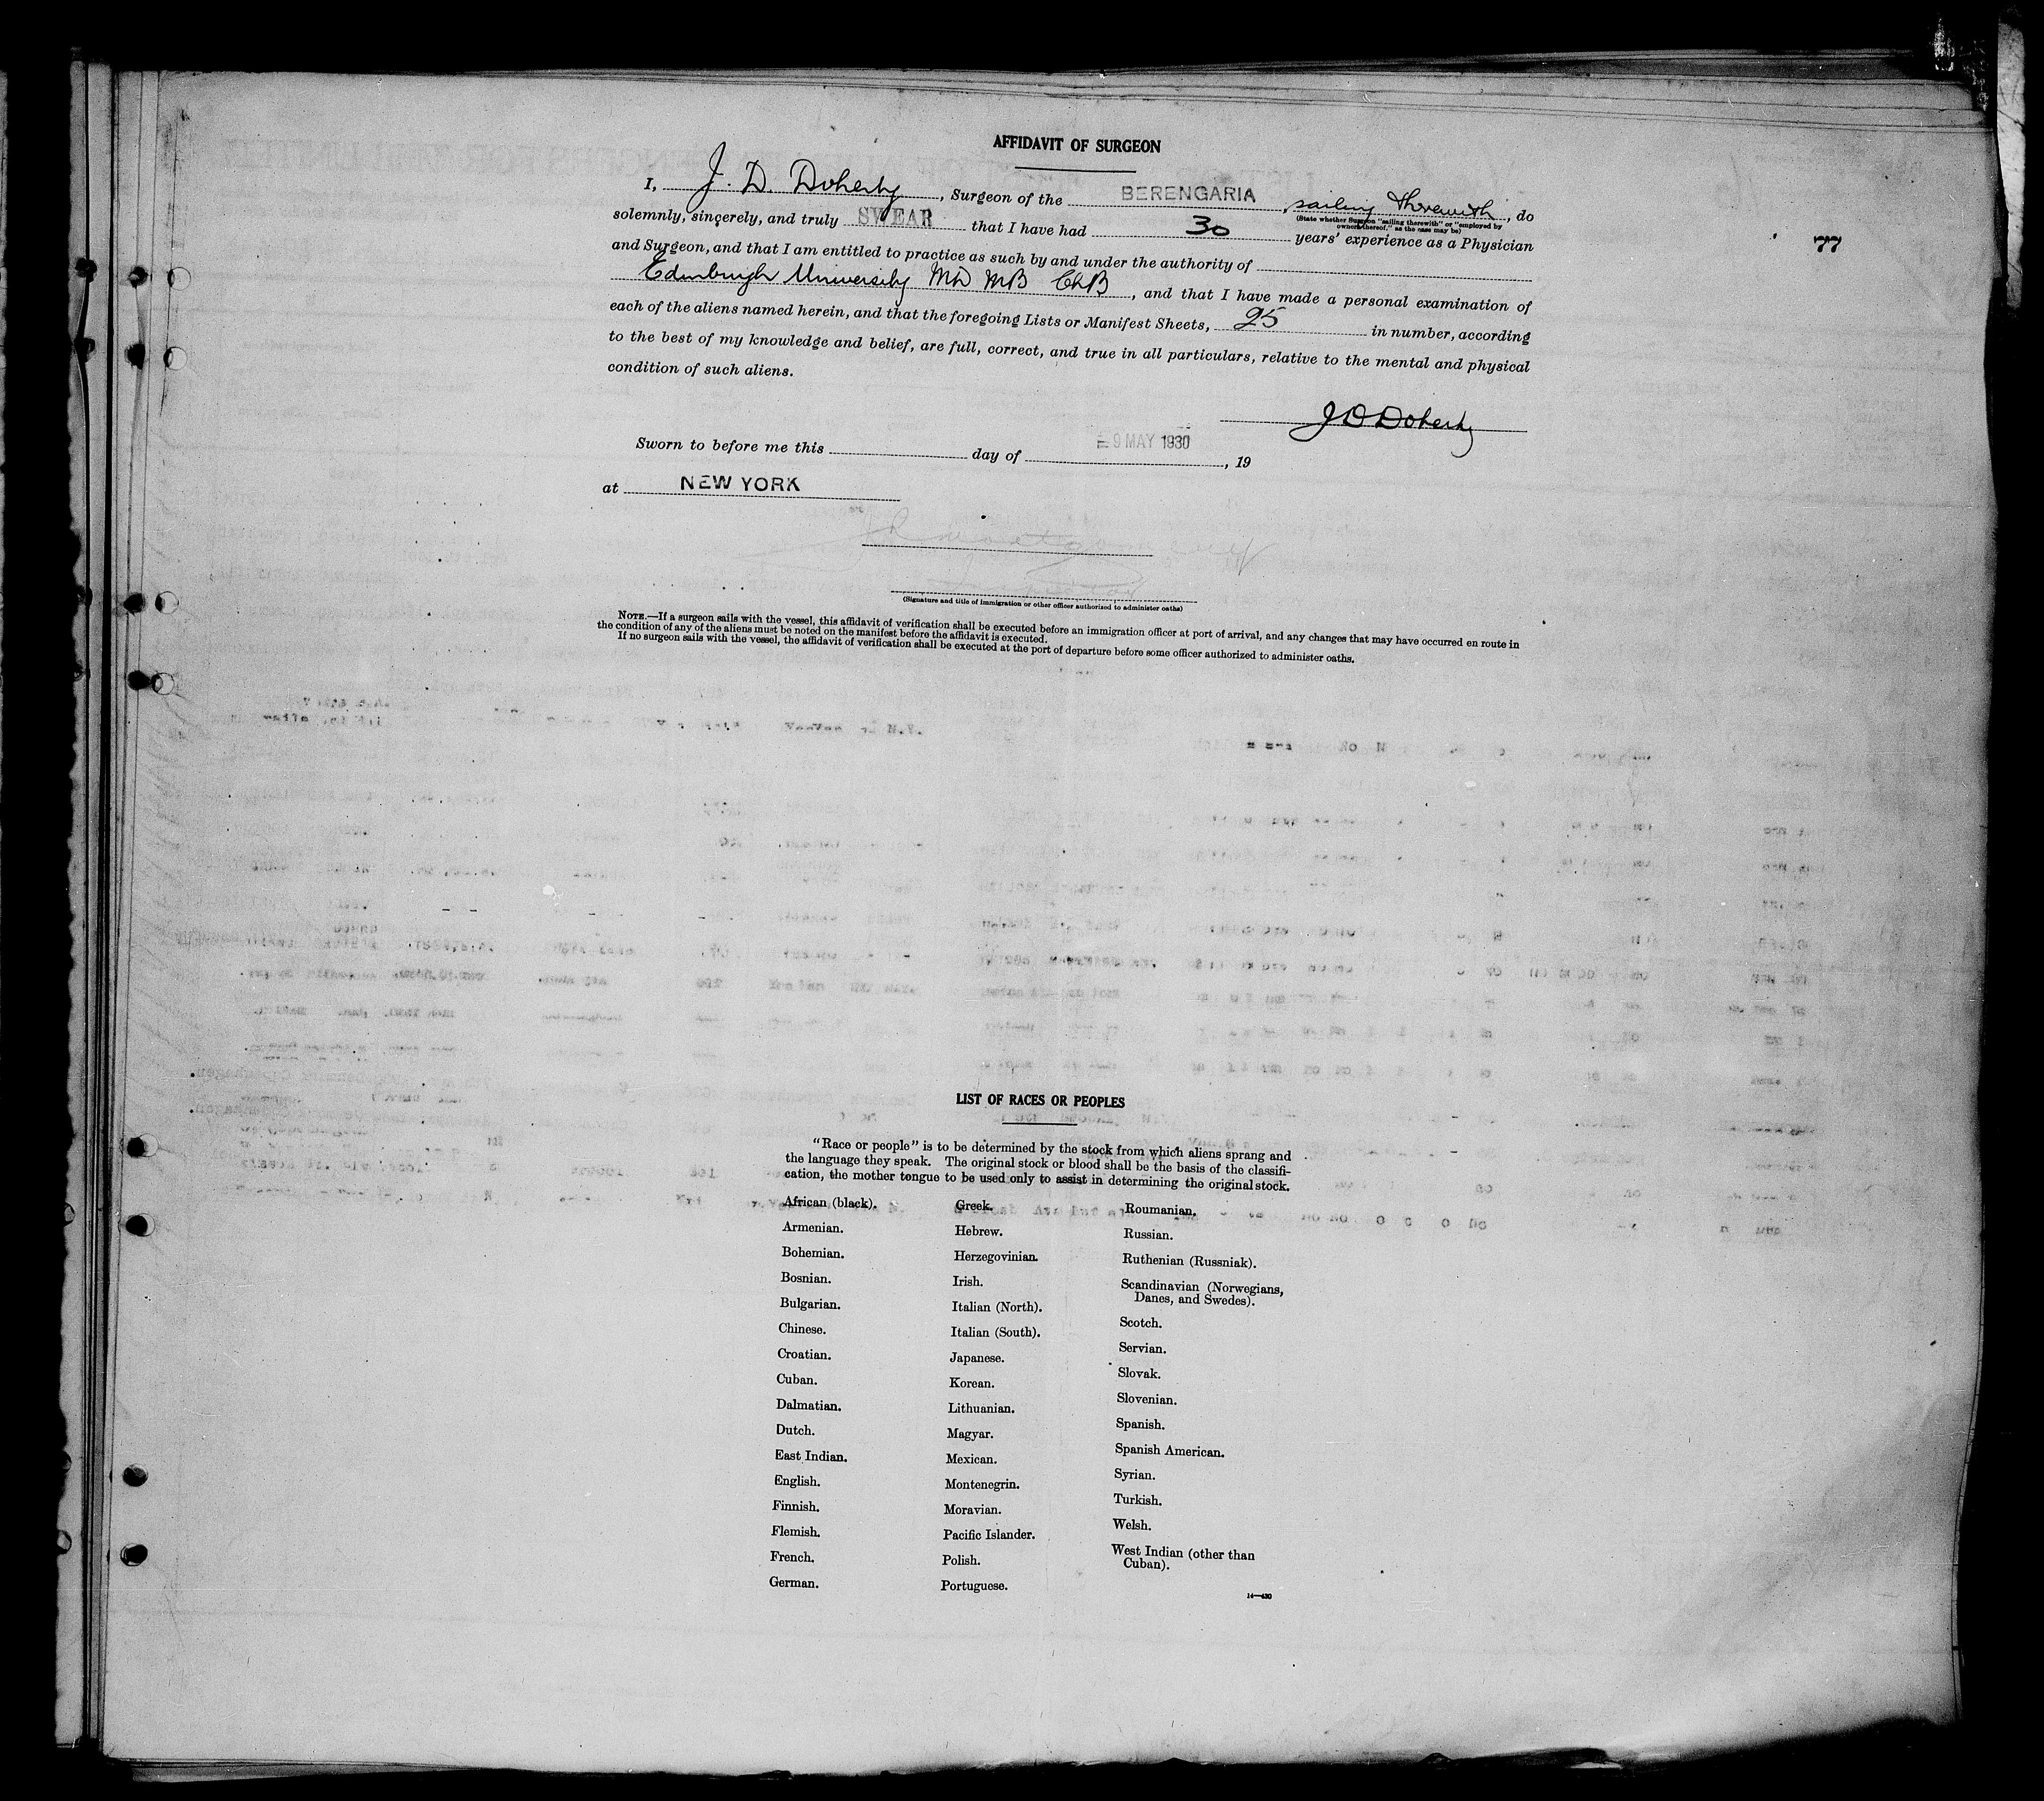 AFFIDAVIT OF SURGEON
I, J. D. Doherty, Surgeon of the BERENGARIA, sailing therewith, do
(State whether Surgeon "sailing therewith" or "employed by
owners thereof," as the case may be)
solemnly, sincerely, and truly SWEAR that I have had 30 years' experience as a Physician
77
and Surgeon, and that I am entitled to practice as such by and under the authority of
Edinburgh University MD MB ChB, and that I have made a personal examination of
each of the aliens named herein, and that the foregoing Lists or Manifest Sheets, 25 in number, according
to the best of my knowledge and belief, are full, correct, and true in all particulars, relative to the mental and physical
condition of such aliens.
J D Doherty
Sworn to before me this day of 9 MAY 1930, 19
at NEW YORK
(Signature and title of immigration or other officer authorized to administer oaths)
NOTE.—If a surgeon sails with the vessel, this affidavit of verification shall be executed before an immigration officer at port of arrival, and any changes that may have occurred en route in
the condition of any of the aliens must be noted on the manifest before the affidavit is executed.
If no surgeon sails with the vessel, the affidavit of verification shall be executed at the port of departure before some officer authorized to administer oaths.
LIST OF RACES OR PEOPLES
"Race or people" is to be determined by the stock from which aliens sprang and
the language they speak. The original stock or blood shall be the basis of the classifi-
cation, the mother tongue to be used only to assist in determining the original stock.
African (black).
Armenian.
Bohemian.
Bosnian.
Bulgarian.
Chinese.
Croatian.
Cuban.
Dalmatian.
Dutch.
East Indian.
English.
Finnish.
Flemish.
French.
German.
Greek.
Hebrew.
Herzegovinian.
Irish.
Italian (North).
Italian (South).
Japanese.
Korean.
Lithuanian.
Magyar.
Mexican.
Montenegrin.
Moravian.
Pacific Islander.
Polish.
Portuguese.
Roumanian.
Russian.
Ruthenian (Russniak).
Scandinavian (Norwegians,
Danes, and Swedes).
Scotch.
Servian.
Slovak.
Slovenian.
Spanish.
Spanish American.
Syrian.
Turkish.
Welsh.
West Indian (other than
Cuban).
14—430